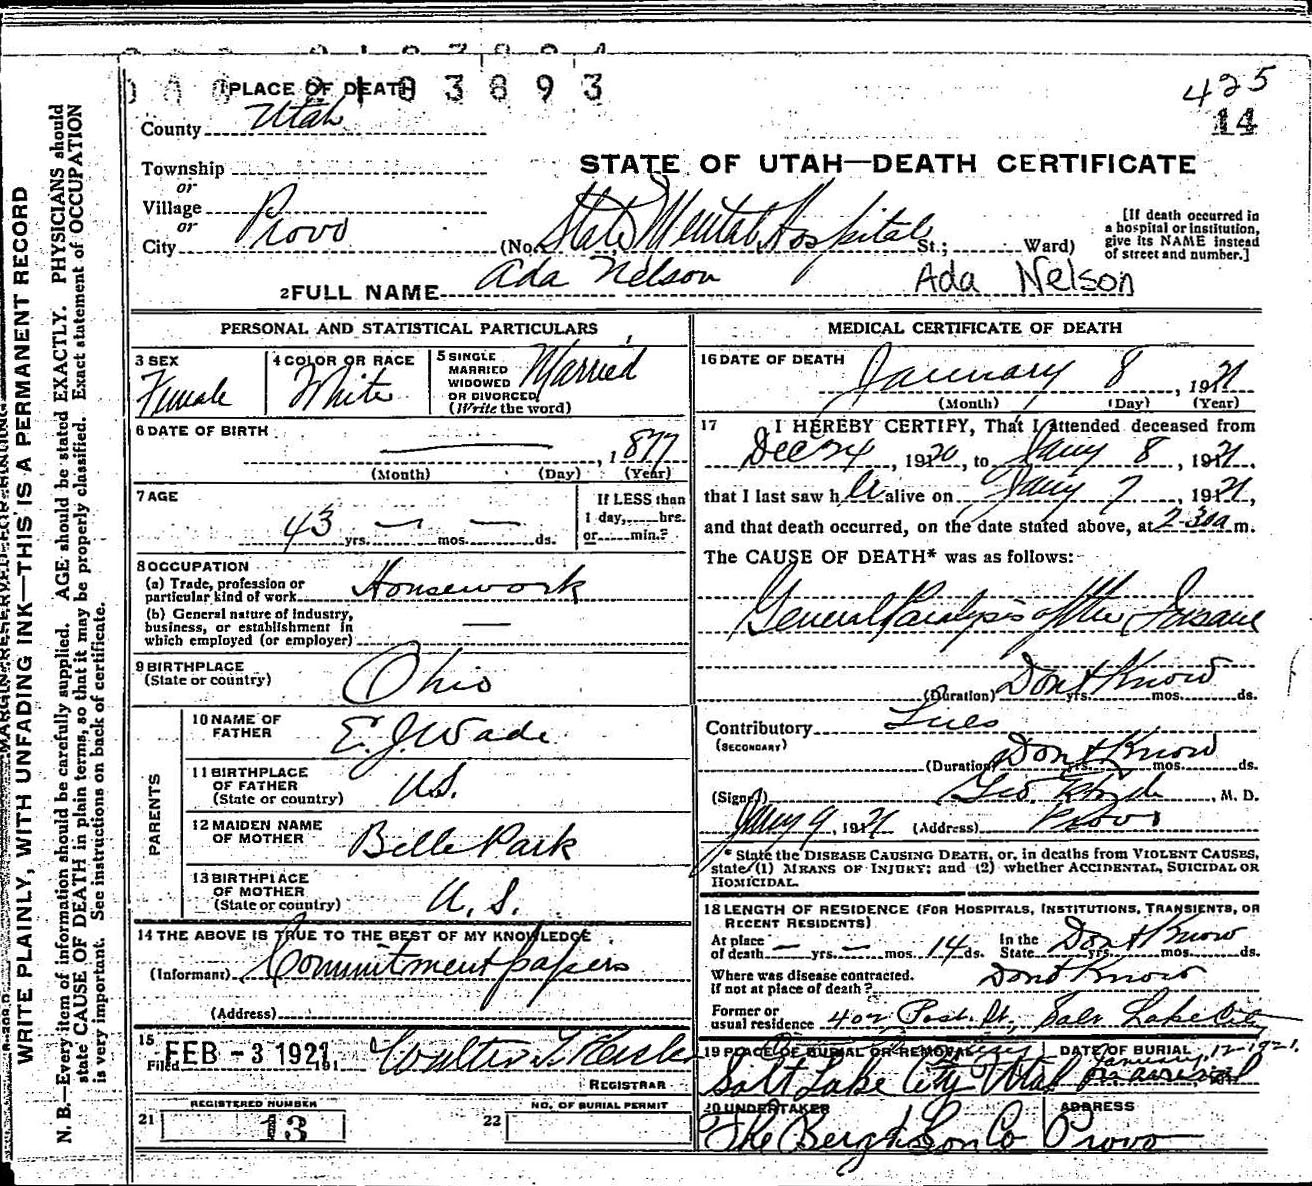 0103893
425
14
1 PLACE OF DEATH
County Utah
Township
or
Village
or
City Provo
STATE OF UTAH—DEATH CERTIFICATE
(No. State Mental Hospital St.; Ward)
[If death occurred in
a hospital or institution,
give its NAME instead
of street and number.]
2 FULL NAME Ada Nelson Ada Nelson
PERSONAL AND STATISTICAL PARTICULARS
3 SEX
Female
4 COLOR OR RACE
White
5 SINGLE
MARRIED
WIDOWED
OR DIVORCED
(Write the word)
Married
6 DATE OF BIRTH
, 1877
(Month) (Day) (Year)
7 AGE
43 yrs. — mos. — ds.
If LESS than
1 day, hrs.
or min.?
8 OCCUPATION
(a) Trade, profession or
particular kind of work Housework
(b) General nature of industry,
business, or establishment in
which employed (or employer) —
9 BIRTHPLACE
(State or country) Ohio
PARENTS
10 NAME OF
FATHER E. J. Wade
11 BIRTHPLACE
OF FATHER
(State or country) U.S.
12 MAIDEN NAME
OF MOTHER Belle Park
13 BIRTHPLACE
OF MOTHER
(State or country) U.S.
14 THE ABOVE IS TRUE TO THE BEST OF MY KNOWLEDGE
(Informant) Commitment papers
(Address)
15
Filed FEB -3 1921 191
REGISTRAR
REGISTERED NUMBER
21 13
NO. OF BURIAL PERMIT
22
MEDICAL CERTIFICATE OF DEATH
16 DATE OF DEATH
January 8, 1921
(Month) (Day) (Year)
17 I HEREBY CERTIFY, That I attended deceased from
Dec 24, 1920, to Jany 8, 1921,
that I last saw her alive on Jany 7, 1921,
and that death occurred, on the date stated above, at 2-30a m.
The CAUSE OF DEATH* was as follows:
General Paralysis of the Insane
(Duration) Dont Know yrs. mos. ds.
Contributory Lues
(SECONDARY)
(Duration) Dont Know yrs. mos. ds.
(Signed) Geo. Hyde, M. D.
Jany 9, 1921 (Address) Provo
* State the DISEASE CAUSING DEATH, or, in deaths from VIOLENT CAUSES,
state (1) MEANS OF INJURY; and (2) whether ACCIDENTAL, SUICIDAL OR
HOMICIDAL.
18 LENGTH OF RESIDENCE (FOR HOSPITALS, INSTITUTIONS, TRANSIENTS, OR
RECENT RESIDENTS)
At place
of death — yrs. — mos. 14 ds.
In the
State Dont Know yrs. mos. ds.
Where was disease contracted,
if not at place of death? Dont Know
Former or
usual residence 402 Post. St., Salt Lake City
19 PLACE OF BURIAL OR REMOVAL
Salt Lake City Utah
DATE OF BURIAL
January 12-1921.
20 UNDERTAKER
The Berg & Son Co
ADDRESS
Provo
MARGIN RESERVED FOR BINDING
WRITE PLAINLY, WITH UNFADING INK—THIS IS A PERMANENT RECORD
N. B.—Every item of information should be carefully supplied. AGE should be stated EXACTLY. PHYSICIANS should
state CAUSE OF DEATH in plain terms, so that it may be properly classified. Exact statement of OCCUPATION
is very important. See instructions on back of certificate.